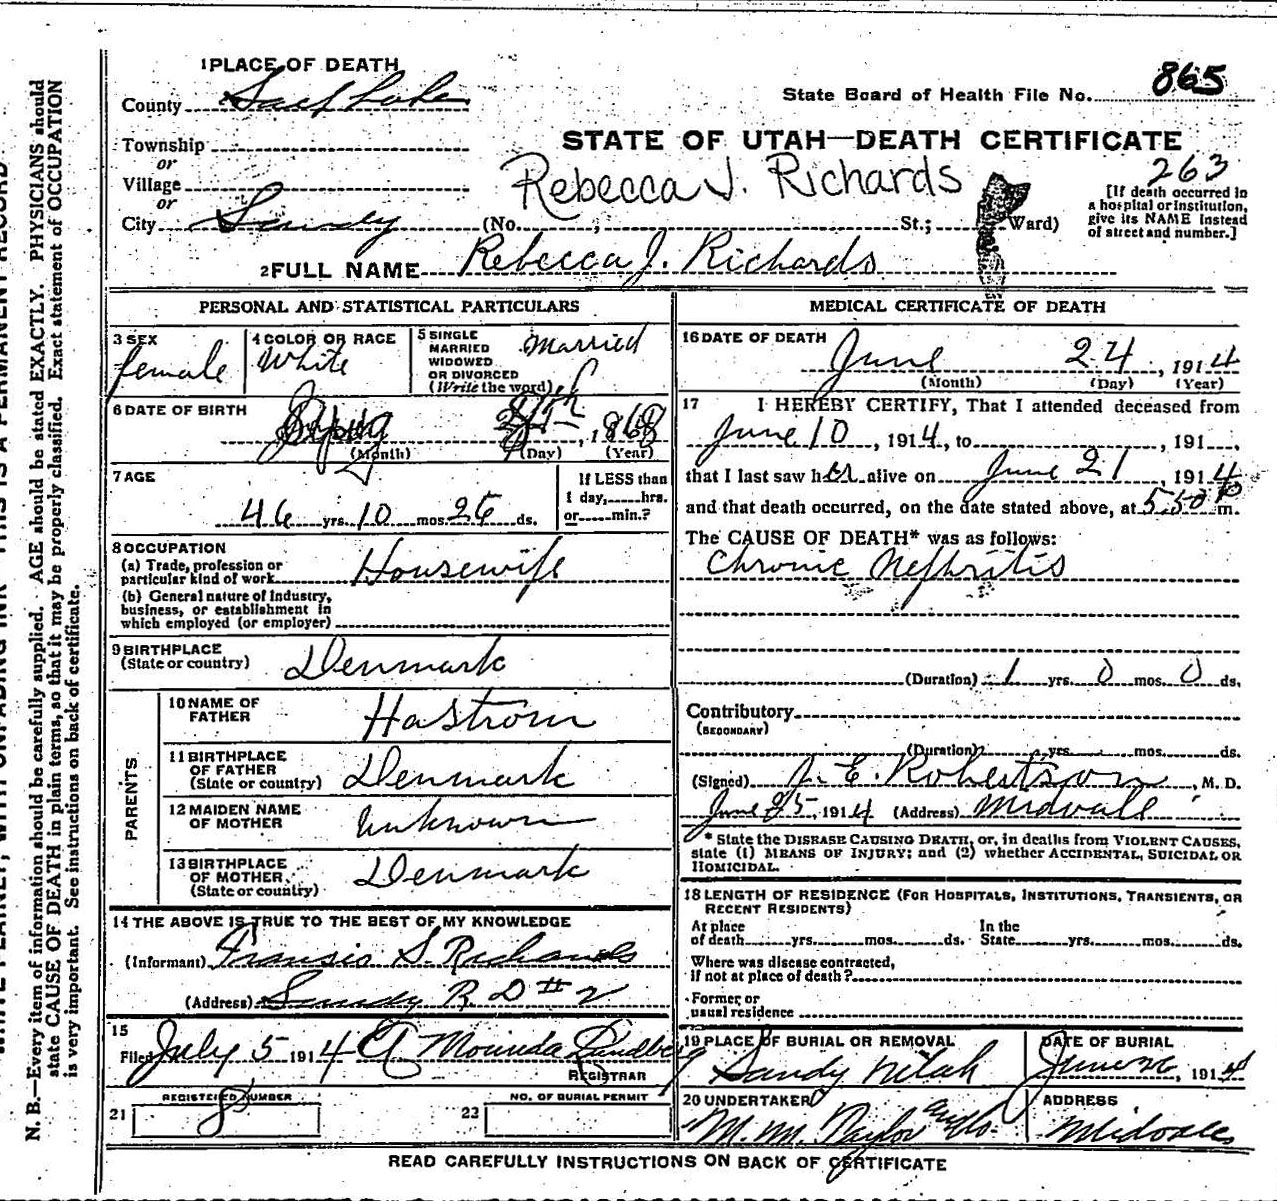 1 PLACE OF DEATH
County Salt Lake
State Board of Health File No. 865
Township
or
Village
or
City Sandy
STATE OF UTAH—DEATH CERTIFICATE
Rebecca J. Richards
263
(No. ; St.; Ward)
[If death occurred in
a hospital or institution,
give its NAME instead
of street and number.]
2 FULL NAME Rebecca J. Richards
PERSONAL AND STATISTICAL PARTICULARS
3 SEX
female
4 COLOR OR RACE
White
5 SINGLE
MARRIED
WIDOWED
OR DIVORCED
(Write the word)
Married
6 DATE OF BIRTH
, 1868
(Month) (Day) (Year)
7 AGE
46 yrs. 10 mos. ds.
If LESS than
1 day, hrs.
or min.?
8 OCCUPATION
(a) Trade, profession or
particular kind of work Housewife
(b) General nature of Industry,
business, or establishment in
which employed (or employer)
9 BIRTHPLACE
(State or country) Denmark
PARENTS
10 NAME OF
FATHER Hastrom
11 BIRTHPLACE
OF FATHER
(State or country) Denmark
12 MAIDEN NAME
OF MOTHER Unknown
13 BIRTHPLACE
OF MOTHER
(State or country) Denmark
14 THE ABOVE IS TRUE TO THE BEST OF MY KNOWLEDGE
(Informant) Fransis S. Richards
(Address) Sandy R D # 2
15
Filed July 5 1914
REGISTRAR
21 REGISTERED NUMBER
8
22 NO. OF BURIAL PERMIT
MEDICAL CERTIFICATE OF DEATH
16 DATE OF DEATH
June 24, 1914
(Month) (Day) (Year)
17 I HEREBY CERTIFY, That I attended deceased from
June 10, 1914, to , 191 ,
that I last saw her alive on June 21, 1914
and that death occurred, on the date stated above, at 5.50 p m.
The CAUSE OF DEATH* was as follows:
Chronic Nephritis
(Duration) 1 yrs. 0 mos. 0 ds.
Contributory
(SECONDARY)
(Duration) yrs. mos. ds.
(Signed) J. E. Robertson, M. D.
June 25, 1914 (Address) Midvale
* State the DISEASE CAUSING DEATH, or, in deaths from VIOLENT CAUSES,
state (1) MEANS OF INJURY; and (2) whether ACCIDENTAL, SUICIDAL OR
HOMICIDAL.
18 LENGTH OF RESIDENCE (FOR HOSPITALS, INSTITUTIONS, TRANSIENTS, OR
RECENT RESIDENTS)
At place
of death yrs. mos. ds.
In the
State yrs. mos. ds.
Where was disease contracted,
if not at place of death?
Former or
usual residence
19 PLACE OF BURIAL OR REMOVAL
Sandy Utah
DATE OF BURIAL
June 26, 1914
20 UNDERTAKER
M. M. Taylor
ADDRESS
Midvale
READ CAREFULLY INSTRUCTIONS ON BACK OF CERTIFICATE
N. B.—Every item of information should be carefully supplied. AGE should be stated EXACTLY. PHYSICIANS should
state CAUSE OF DEATH in plain terms, so that it may be properly classified. Exact statement of OCCUPATION
is very important. See instructions on back of certificate.